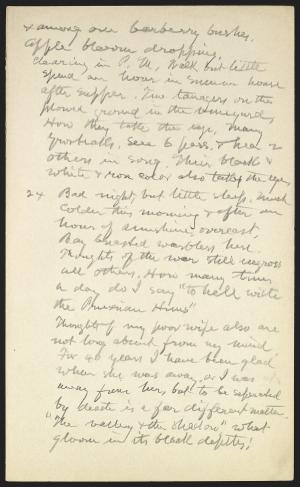 & among our barberry bushes.
Apple bloom dropping.
Clearing in P.M., Work but little
Spend an hour in Summer house
after supper. Two tanagers on the
plowed ground in the vineyard,
How they take the eye, many
Grosbeaks, see 6 pass & hear 2
others in song. Their black &
white & rose color also takes the eye,
24 Bad night, but little sleep. Much
colder this morning & after an
hour of sunshine, overcast.
Bay breasted warblers here.
Thoughts of the war still engross
all others. How many times
a day do I say "to hell with
the Prussian Huns"
Thoughts of my poor wife also are
not long absent from my mind
For 40 years I have been glad
when she was away, or I was
away from her, but to be separated
by death is a far different matter.
"The valley & the shadow" what
gloom in its black depths!